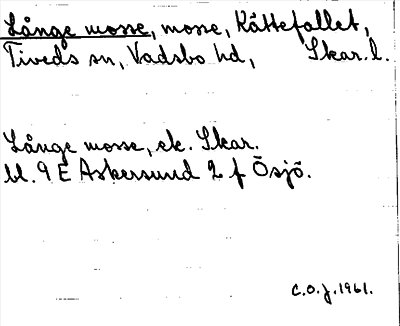 Långe mosse, mosse, Kåttefallet,
Tiveds sn, Vadsbo hd, Skar. l.
Långe mosse, ek. Skar.
bl. 9 E Askersund 2 f Ösjö.
C.O.J. 1961.